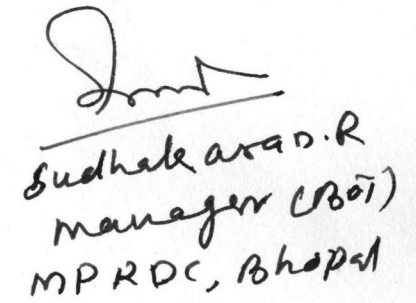 Sudhakarao.R
Manager (BOT)
MPRDC, Bhopal